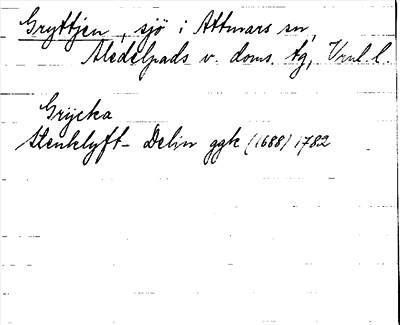 Gryttjen, sjö i Attmars sn,
Medelpads v. doms. tg, Vrnl. l.
Grycka
Stenklyft- Delin ggk (1688) 1782